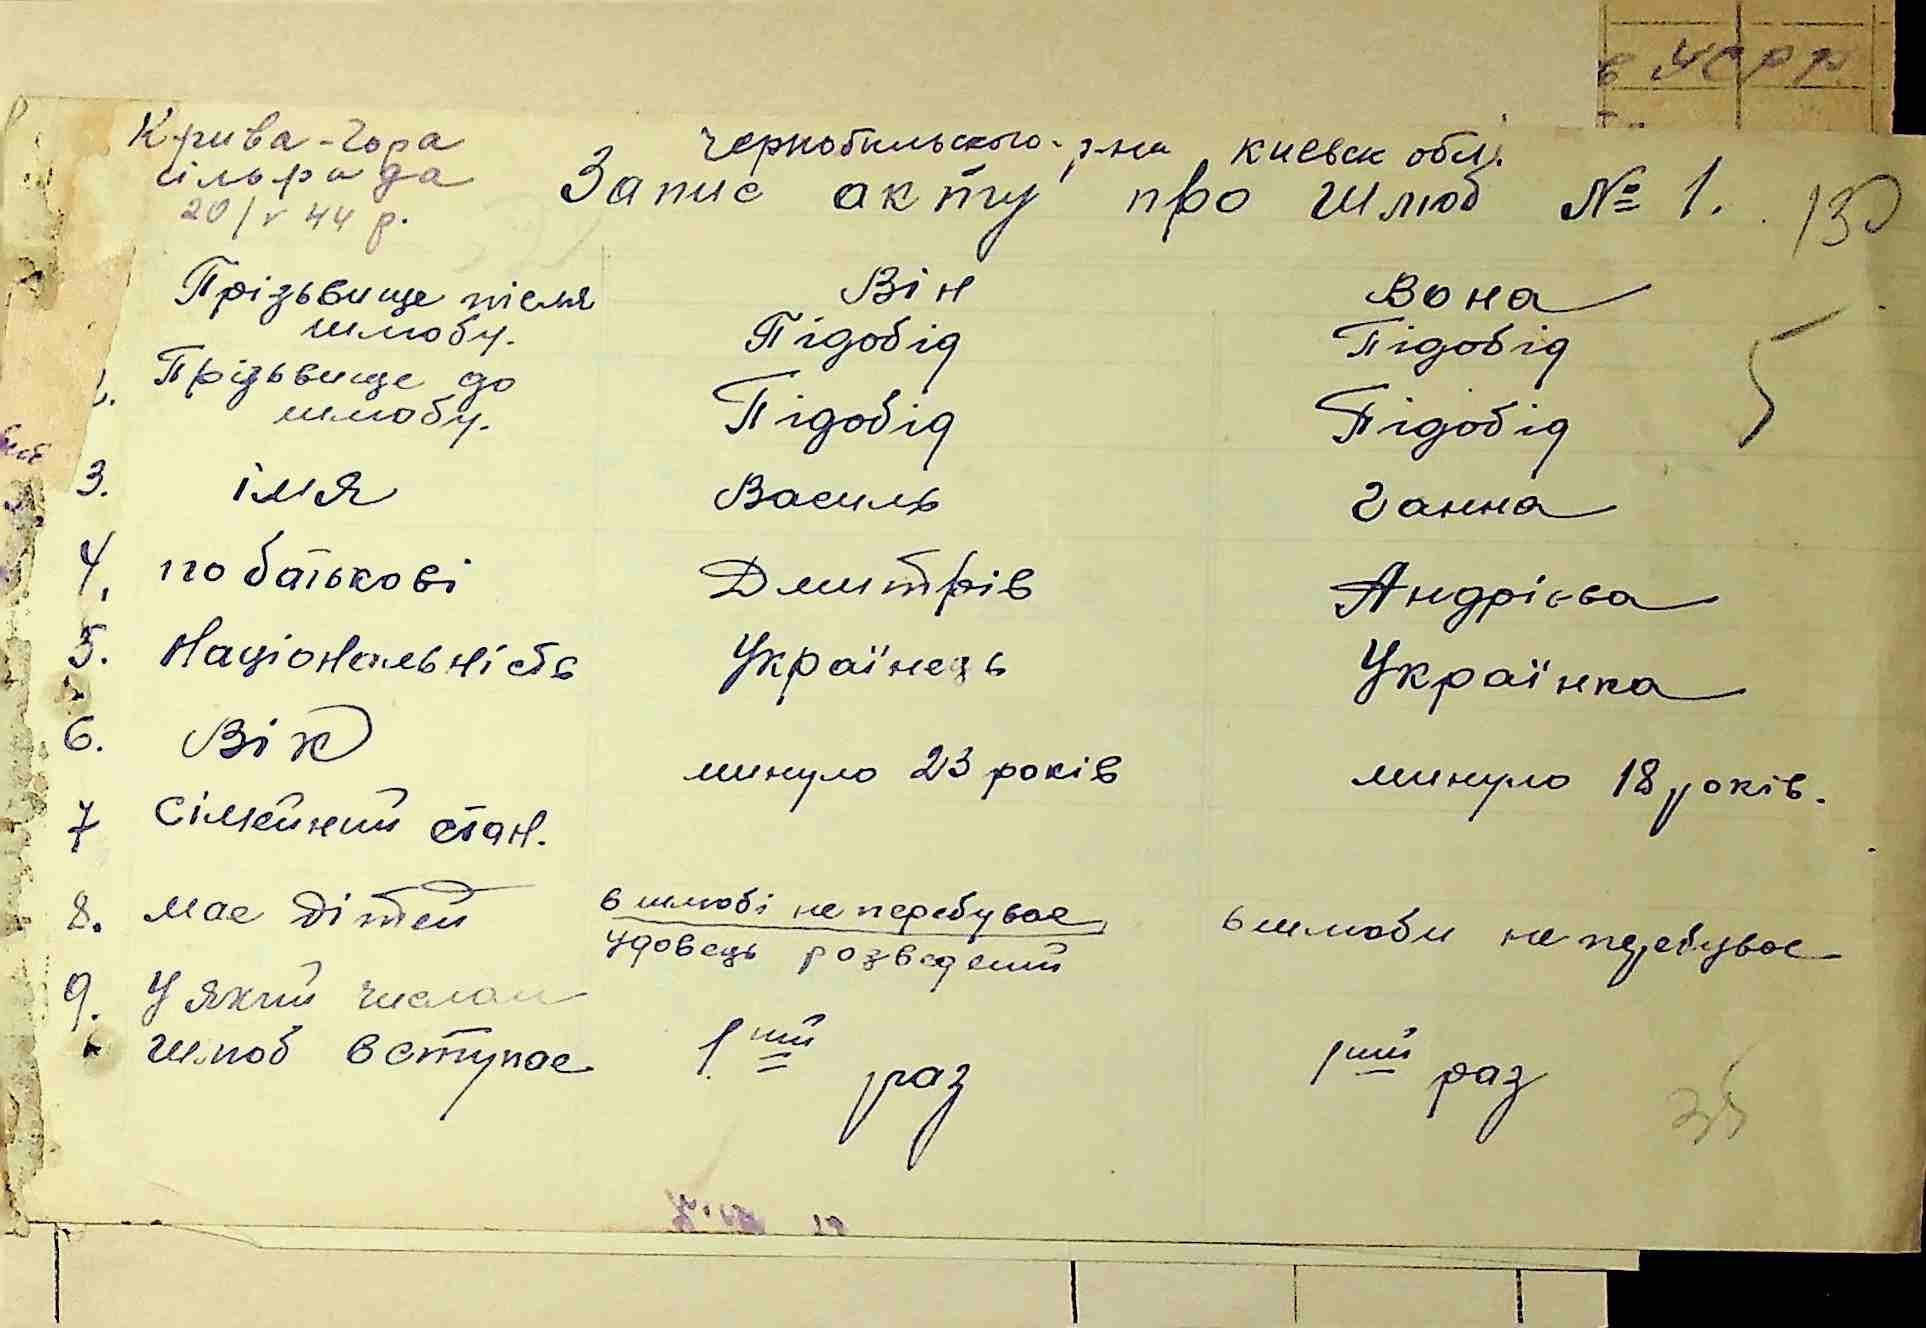 в УСРР
Крива-Гора
сільрада
20/V 44 р.
Чернобильського р-на Києвск обл.
Запис акту про шлюб № 1.
130
Він Вона
Прізьвище після шлюбу. Підобід Підобід
5
2. Прізьвище до шлюбу. Підобід Підобід
3. імя Василь Ганна
4. по батькові Дмитрів Андрієва
5. Національність Українець Українка
6. Вік минуло 23 років минуло 18 років.
7 Сімейний стан.
8. має дітей в шлюбі не перебуває в шлюби не перебуває
удовець розведений
9. У який числом
шлюб вступає 1ший раз 1ший раз
35